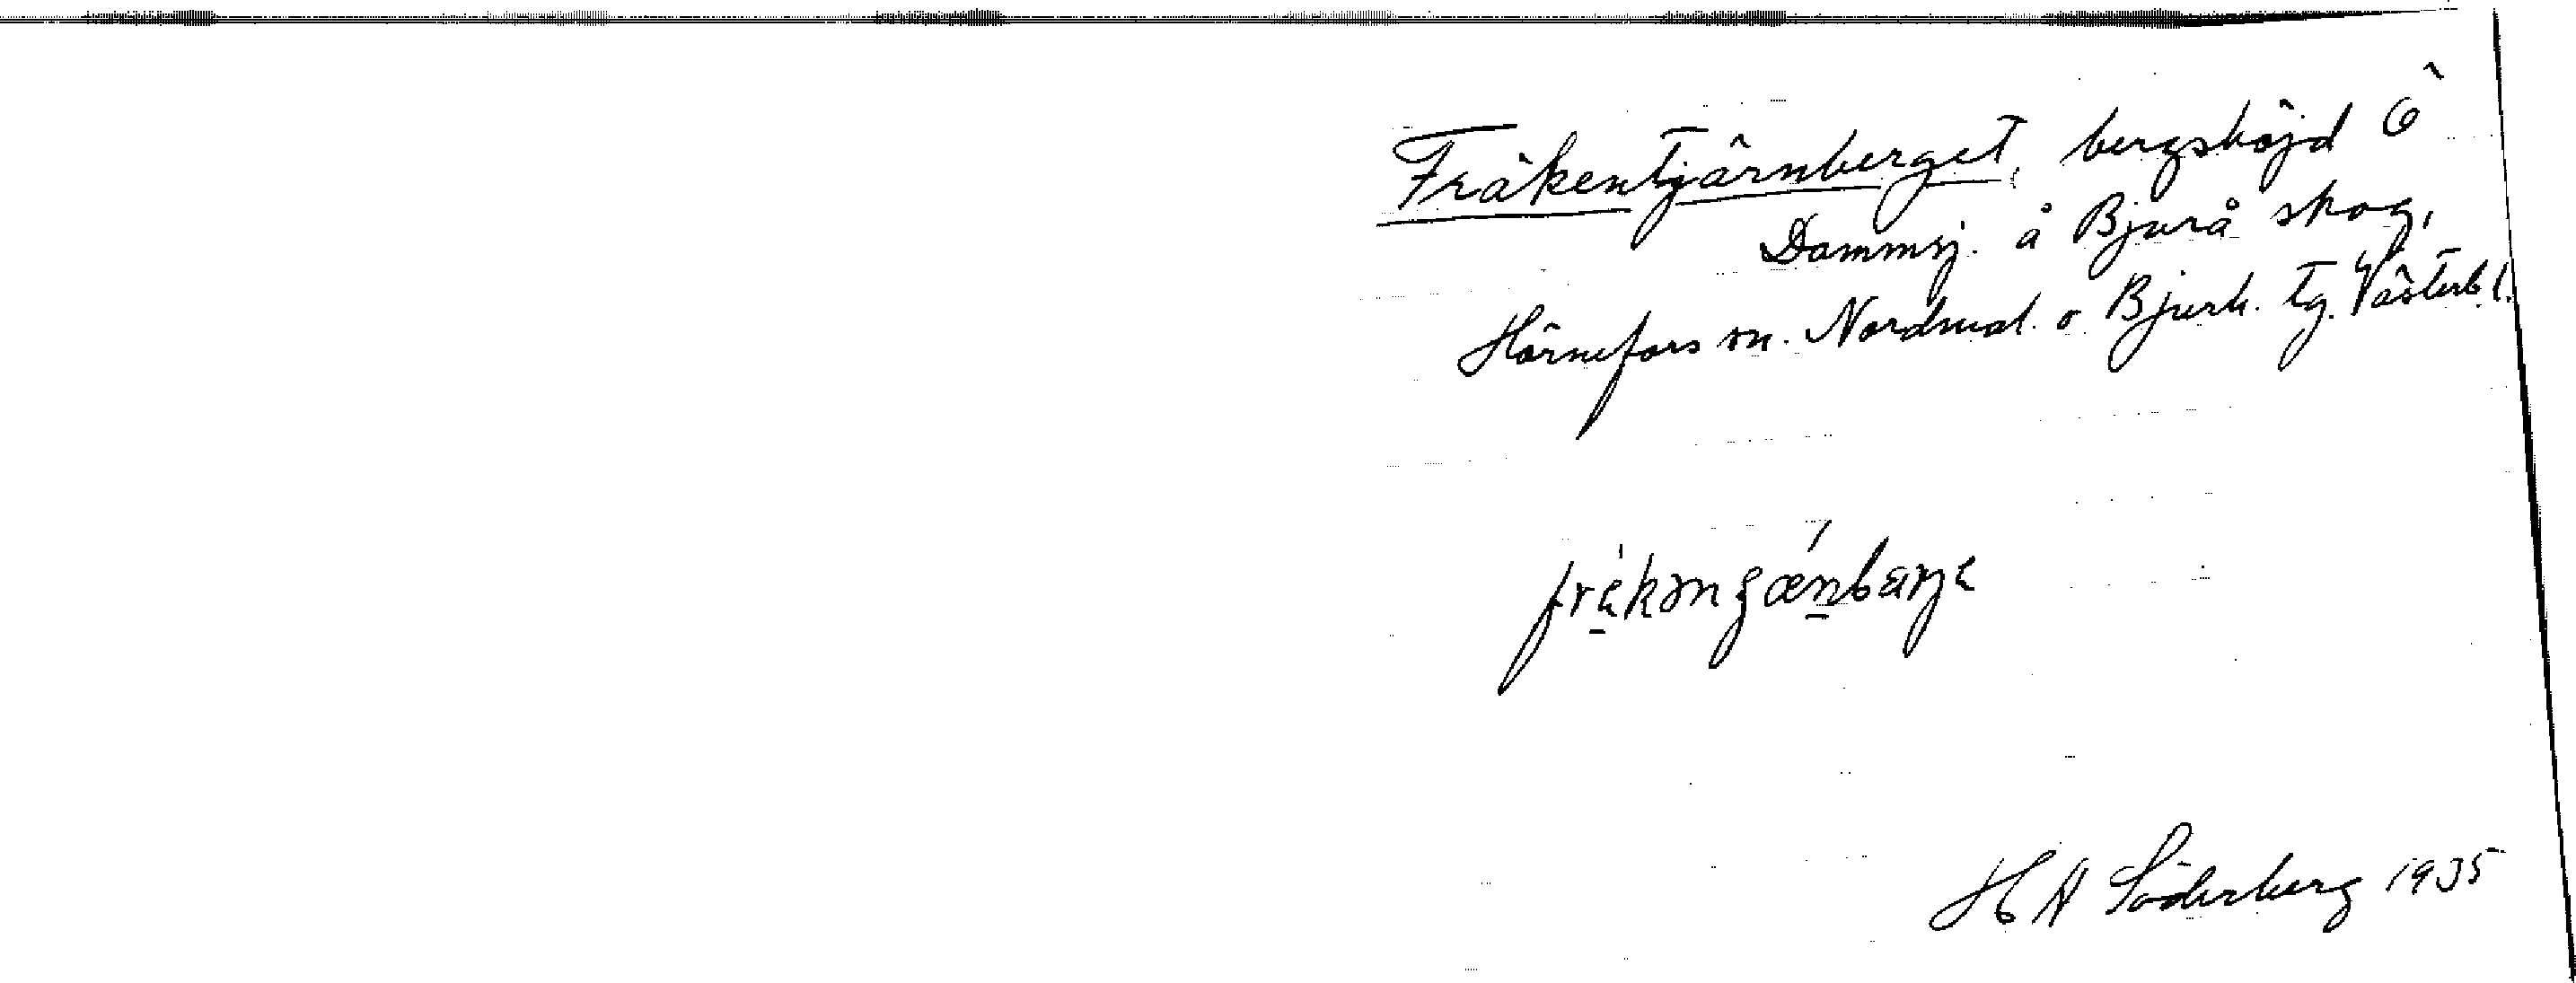 Fräkentjärnberget, bergshöjd Ö
Dammsj. å Bjurå skog,
Hörnefors sn. Nordmal. o Bjurh. tg. Västerb. l.
frä̀kənʒæ̀nbærjε
H A Söderberg 1935